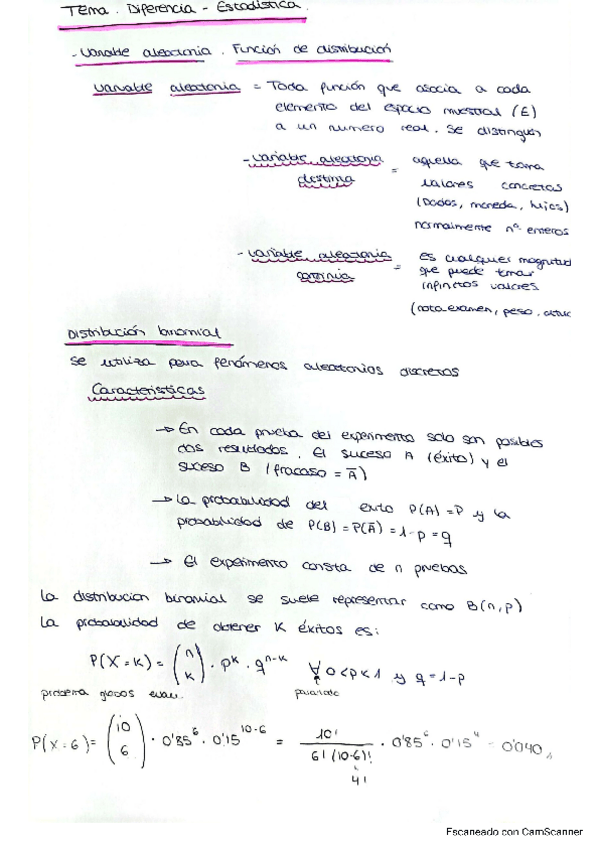 Tema. Diferencia - Estadística.
- Variable aleatoria. Función de distribución
Variable aleatoria = Toda función que asocia a cada
elemento del espacio muestral (E)
a un numero real. Se distinguen
- Variable aleatoria = aquella que toma
valores concretos
(Dados, moneda, hijos)
normalmente nº enteros
- Variable aleatoria = es cualquier magnitud
que puede tomar
infinitos valores
(nota examen, peso,
Distribución binomial
Se utiliza para fenómenos aleatorios discretos
Características
→ En cada prueba del experimento solo son posibles
dos resultados. El suceso A (éxito) y el
suceso B (fracaso = A̅)
→ La probabilidad del exito P(A) = P y la
probabilidad de P(B) = P(A̅) = 1 - p = q
→ El experimento consta de n pruebas
La distribucion binomial se suele representar como B(n,p)
La probabilidad de obtener K éxitos es:
P(X=K) = (n K) · p^K · q^(n-K) ∀ 0<p<1 y q=1-p
para todo
P(X=6) = (10 6) · 0'85^6 · 0'15^(10-6) = 10! / 6! (10-6)! · 0'85^6 · 0'15^4 = 0'040
4!
Escaneado con CamScanner